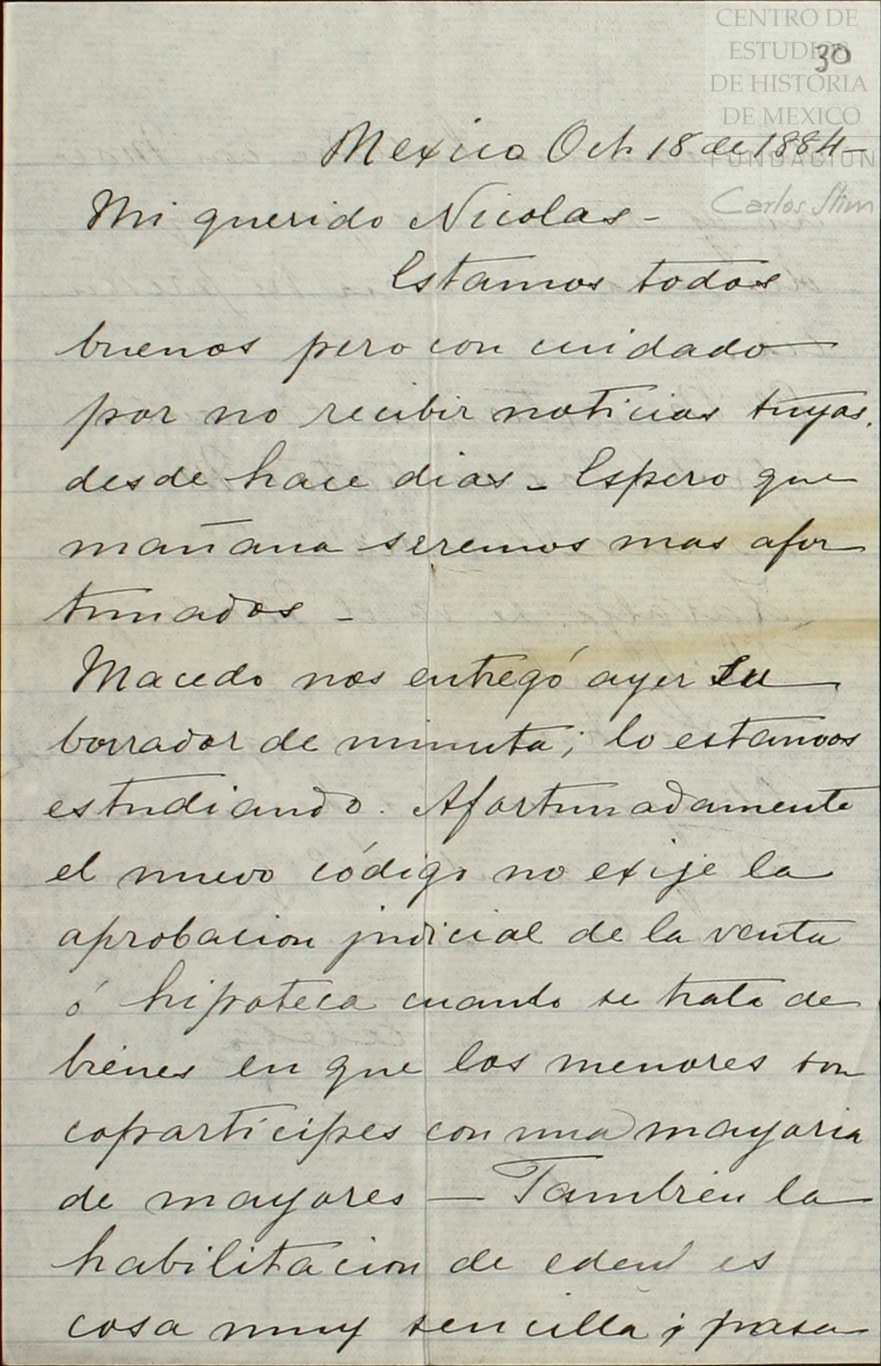 CENTRO DE
ESTUDIOS
DE HISTORIA
DE MEXICO
FUNDACION
Carlos Slim
30
Mexico Oct. 18 de 1884-
Mi querido Nicolas -
Estamos todos
buenos pero con cuidado
por no recibir noticias tuyas.
desde hace dias - Espero que
mañana seremos mas afor
tunados -
Macedo nos entregó ayer su
borrador de minuta; lo estamos
estudiando. Afortunadamente
el nuevo código no exije la
aprobacion judicial de la venta
ó hipoteca cuando se trata de
bienes en que los menores son
coparticipes con una mayoria
de mayores — Tambien la
habilitacion de edad es
cosa muy sencilla; pasa